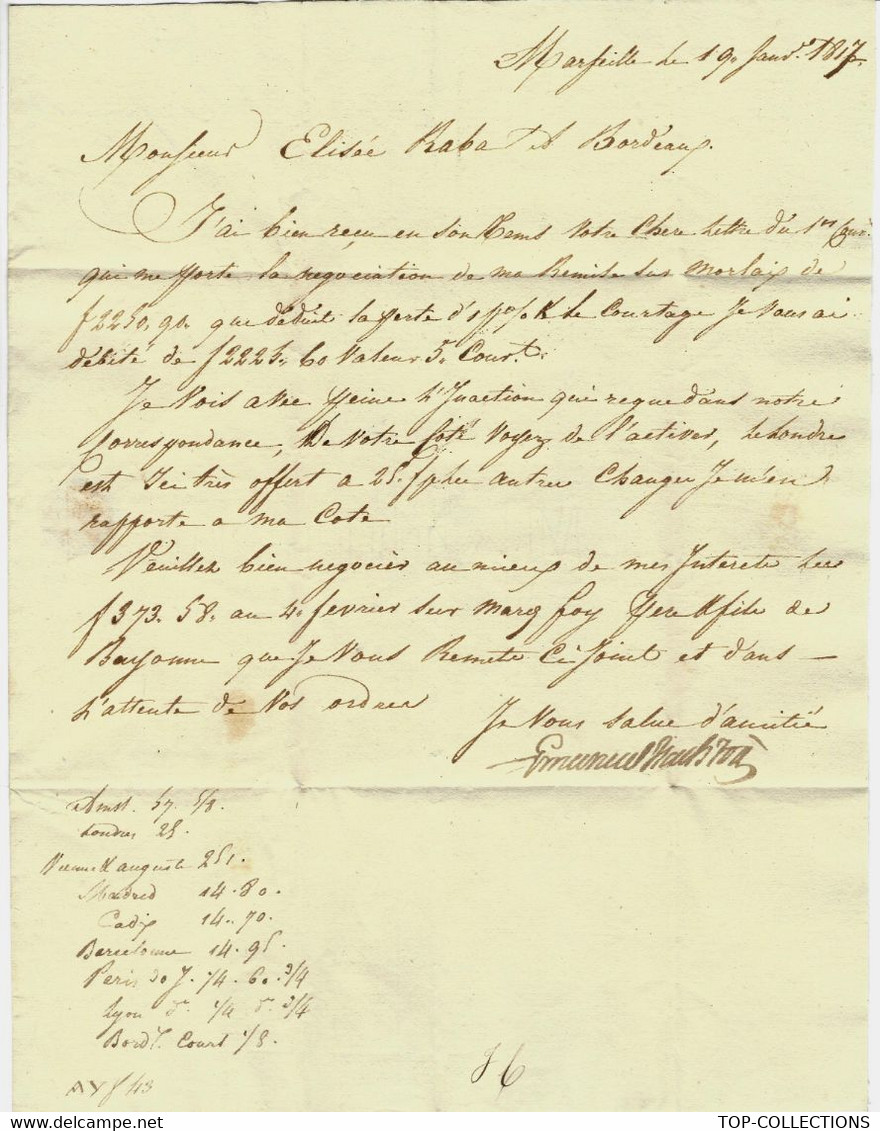 Marseille le 19. Janv. 1817.
Monsieur Elisée Raba à Bordeaux.
J'ai bien reçu en son tems votre chere Lettre du 1er
qui me porte la negociation de ma Remise sur Morlaix de
f 2250. 90. que déduit la perte d'1 p% & le Courtage Je vous ai
débité de f 2223. 60 Valeur 5. Court.
Je Vois avec peine L'Inaction qui regne dans notre
Correspondance, De votre Coté voyez de l'activer, le Londre
est Ici très offert a 25. f p les autres Changes Je m'en
rapporte a ma Cote
Veuillez bien negocier au mieux de mes Interets Les
f 373. 58. au 4. fevrier sur Marq foy & fils de
Bayonne que Je Vous Remets Ci Joint et dans
L'attente de Vos ordres
Je Vous salue d'amitié
Amst. 57. 5/8.
Londres 25.
Vienne & auguste 251.
Madrid 14. 80.
Cadix 14. 70.
Barcelonne 14. 95.
Paris 30 J. 1/4. 60. 3/4
Lyon do 1/4 do 3/4
Bord. Court 1/8.
AY f 43
TOP-COLLECTIONS